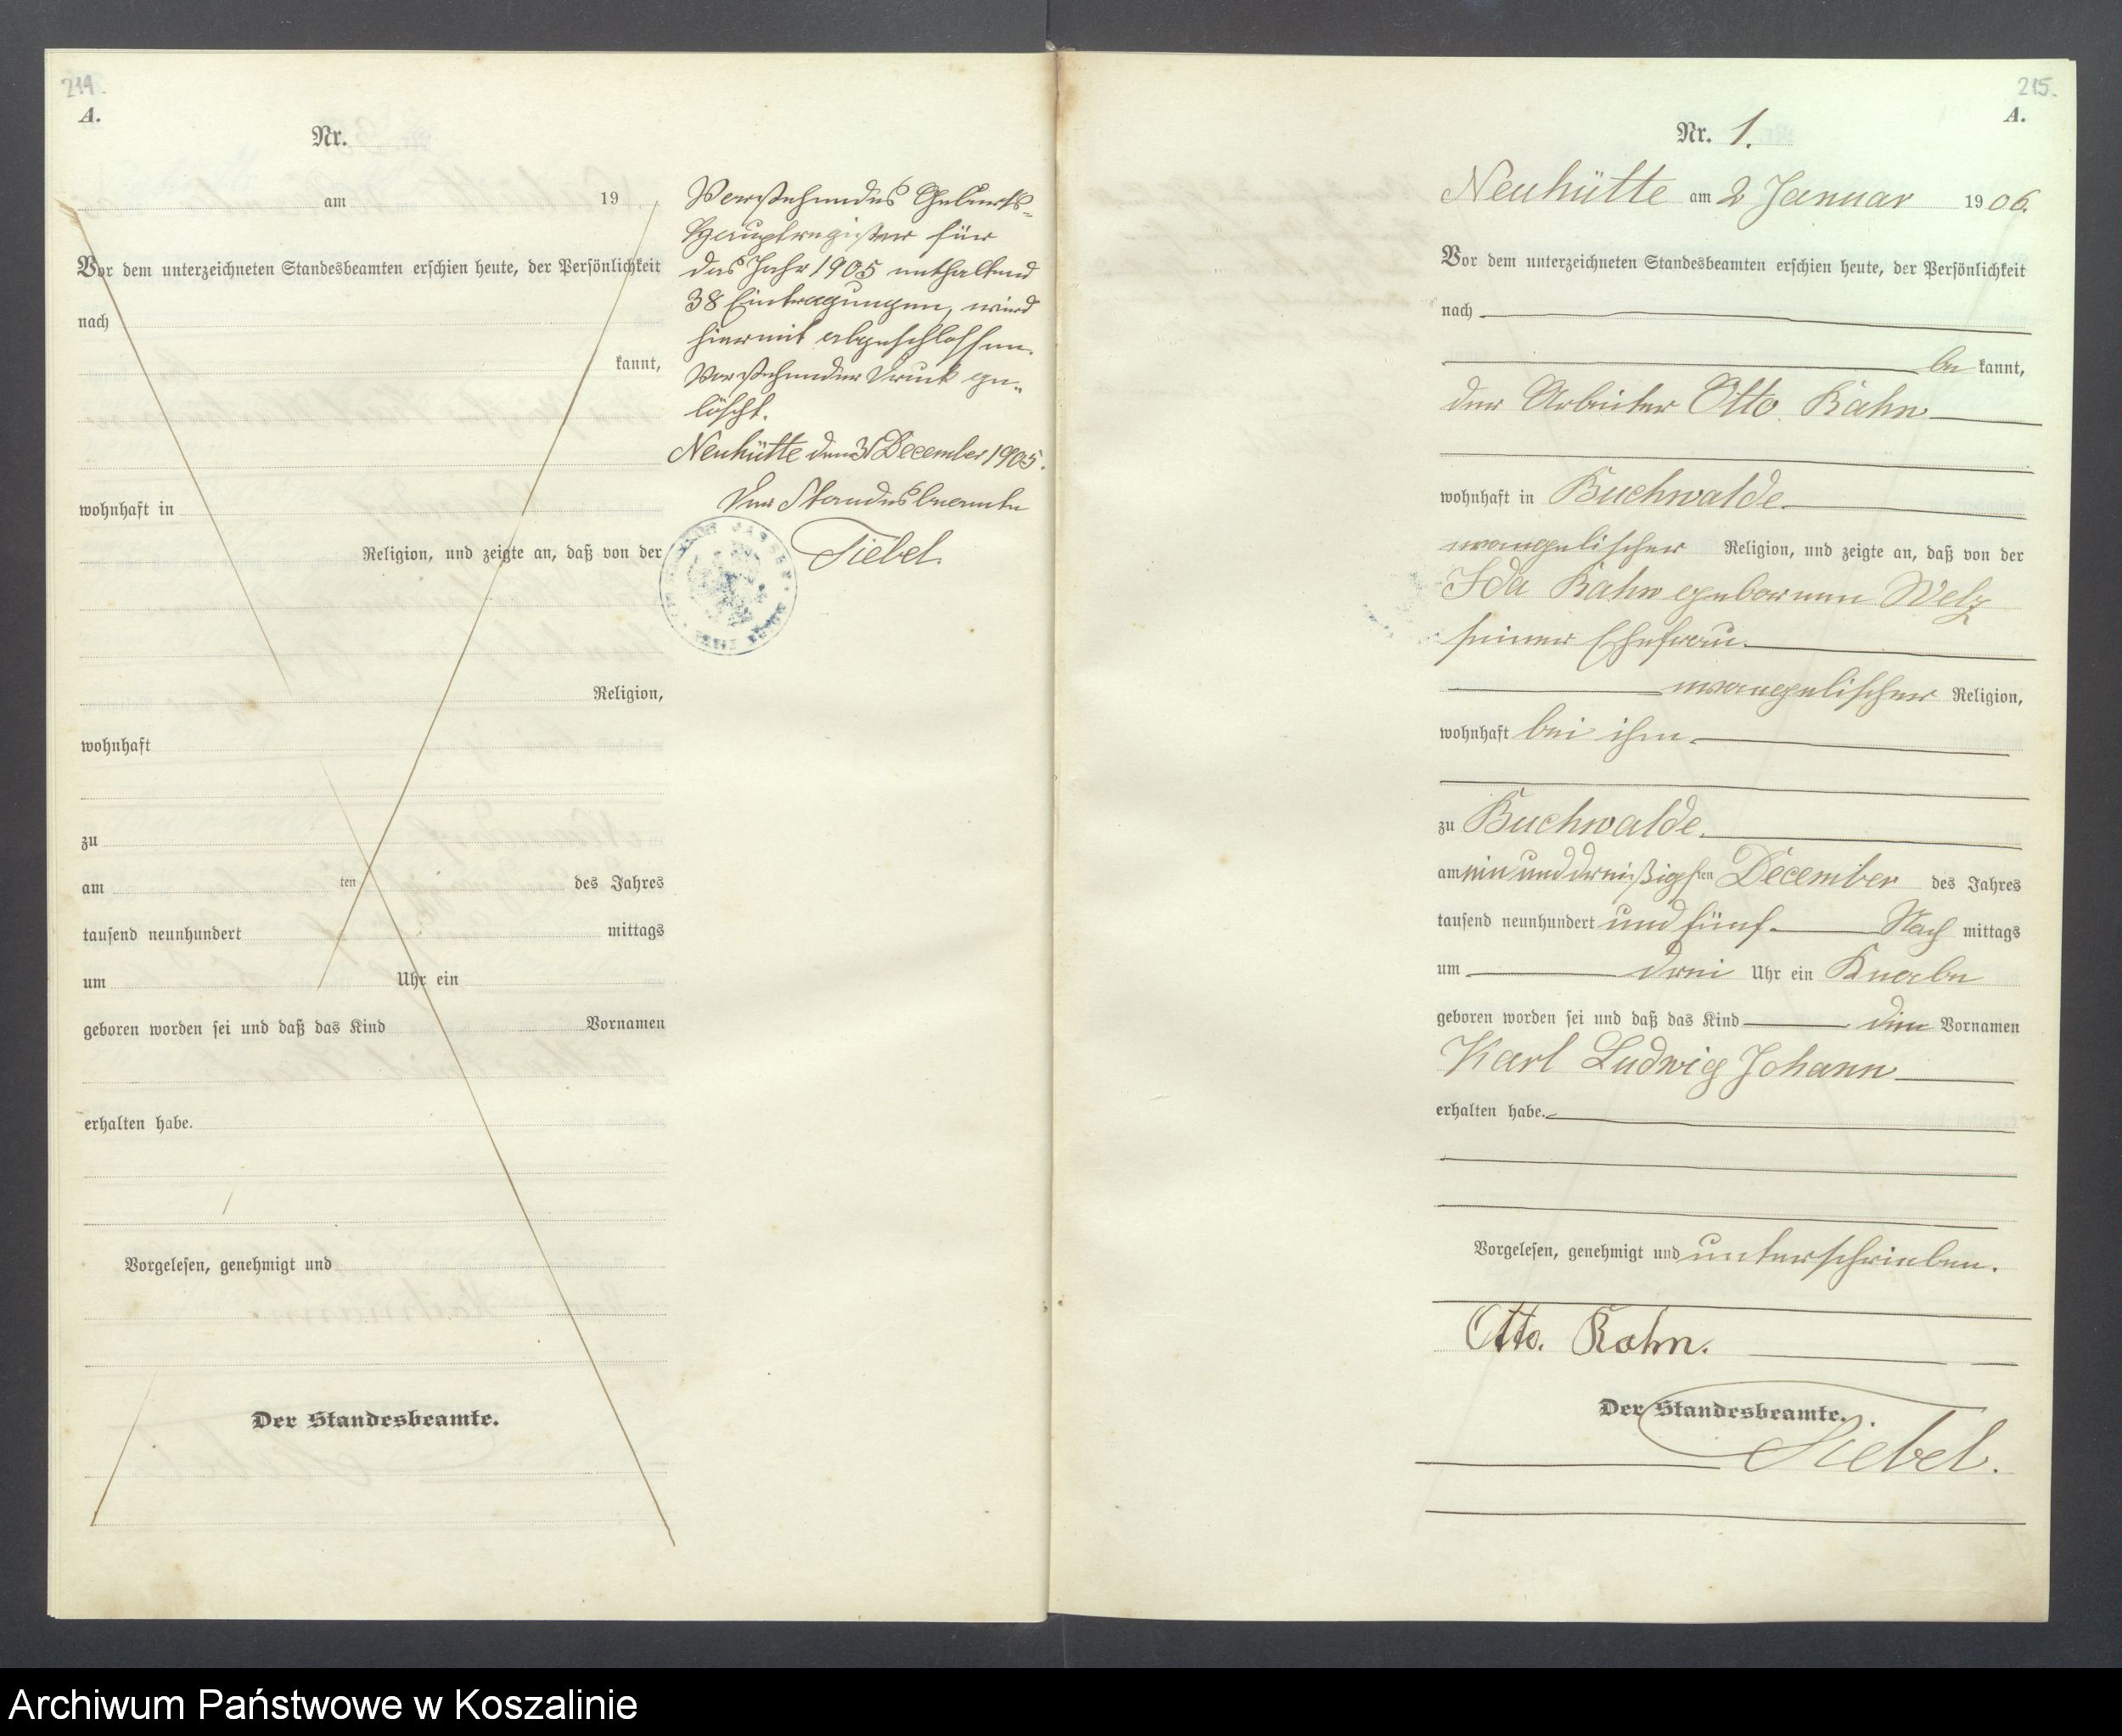 214.
A.
Nr.
am 19
Vor dem unterzeichneten Standesbeamten erschien heute, der Persönlichkeit
nach
kannt,
wohnhaft in
Religion, und zeigte an, daß von der
Religion,
wohnhaft
zu
am ten des Jahres
tausend neunhundert mittags
um Uhr ein
geboren worden sei und daß das Kind Vornamen
erhalten habe.
Vorgelesen, genehmigt und
Der Standesbeamte.
Vorstehendes Geburts-
Hauptregister für
das Jahr 1905 enthaltend
38 Eintragungen, wird
hiermit abgeschlossen.
Vorstehender Druck ge-
löscht.
Neuhütte den 31 December 1905.
Der Standesbeamte
Siebel.
215.
A.
Nr. 1.
Neuhütte am 2 Januar 1906.
Vor dem unterzeichneten Standesbeamten erschien heute, der Persönlichkeit
nach
be kannt,
der Arbeiter Otto Rahn
wohnhaft in Buchwalde.
evangelischer Religion, und zeigte an, daß von der
Ida Rahn geborenen Welz
seiner Ehefrau.
evangelischer Religion,
wohnhaft bei ihm.
zu Buchwalde.
am einunddreißigsten December des Jahres
tausend neunhundert und fünf. Nach mittags
um drei Uhr ein Knabe
geboren worden sei und daß das Kind die Vornamen
Karl Ludwig Johann
erhalten habe.
Vorgelesen, genehmigt und unterschrieben.
Otto. Rahn.
Der Standesbeamte.
Siebel.
Archiwum Państwowe w Koszalinie